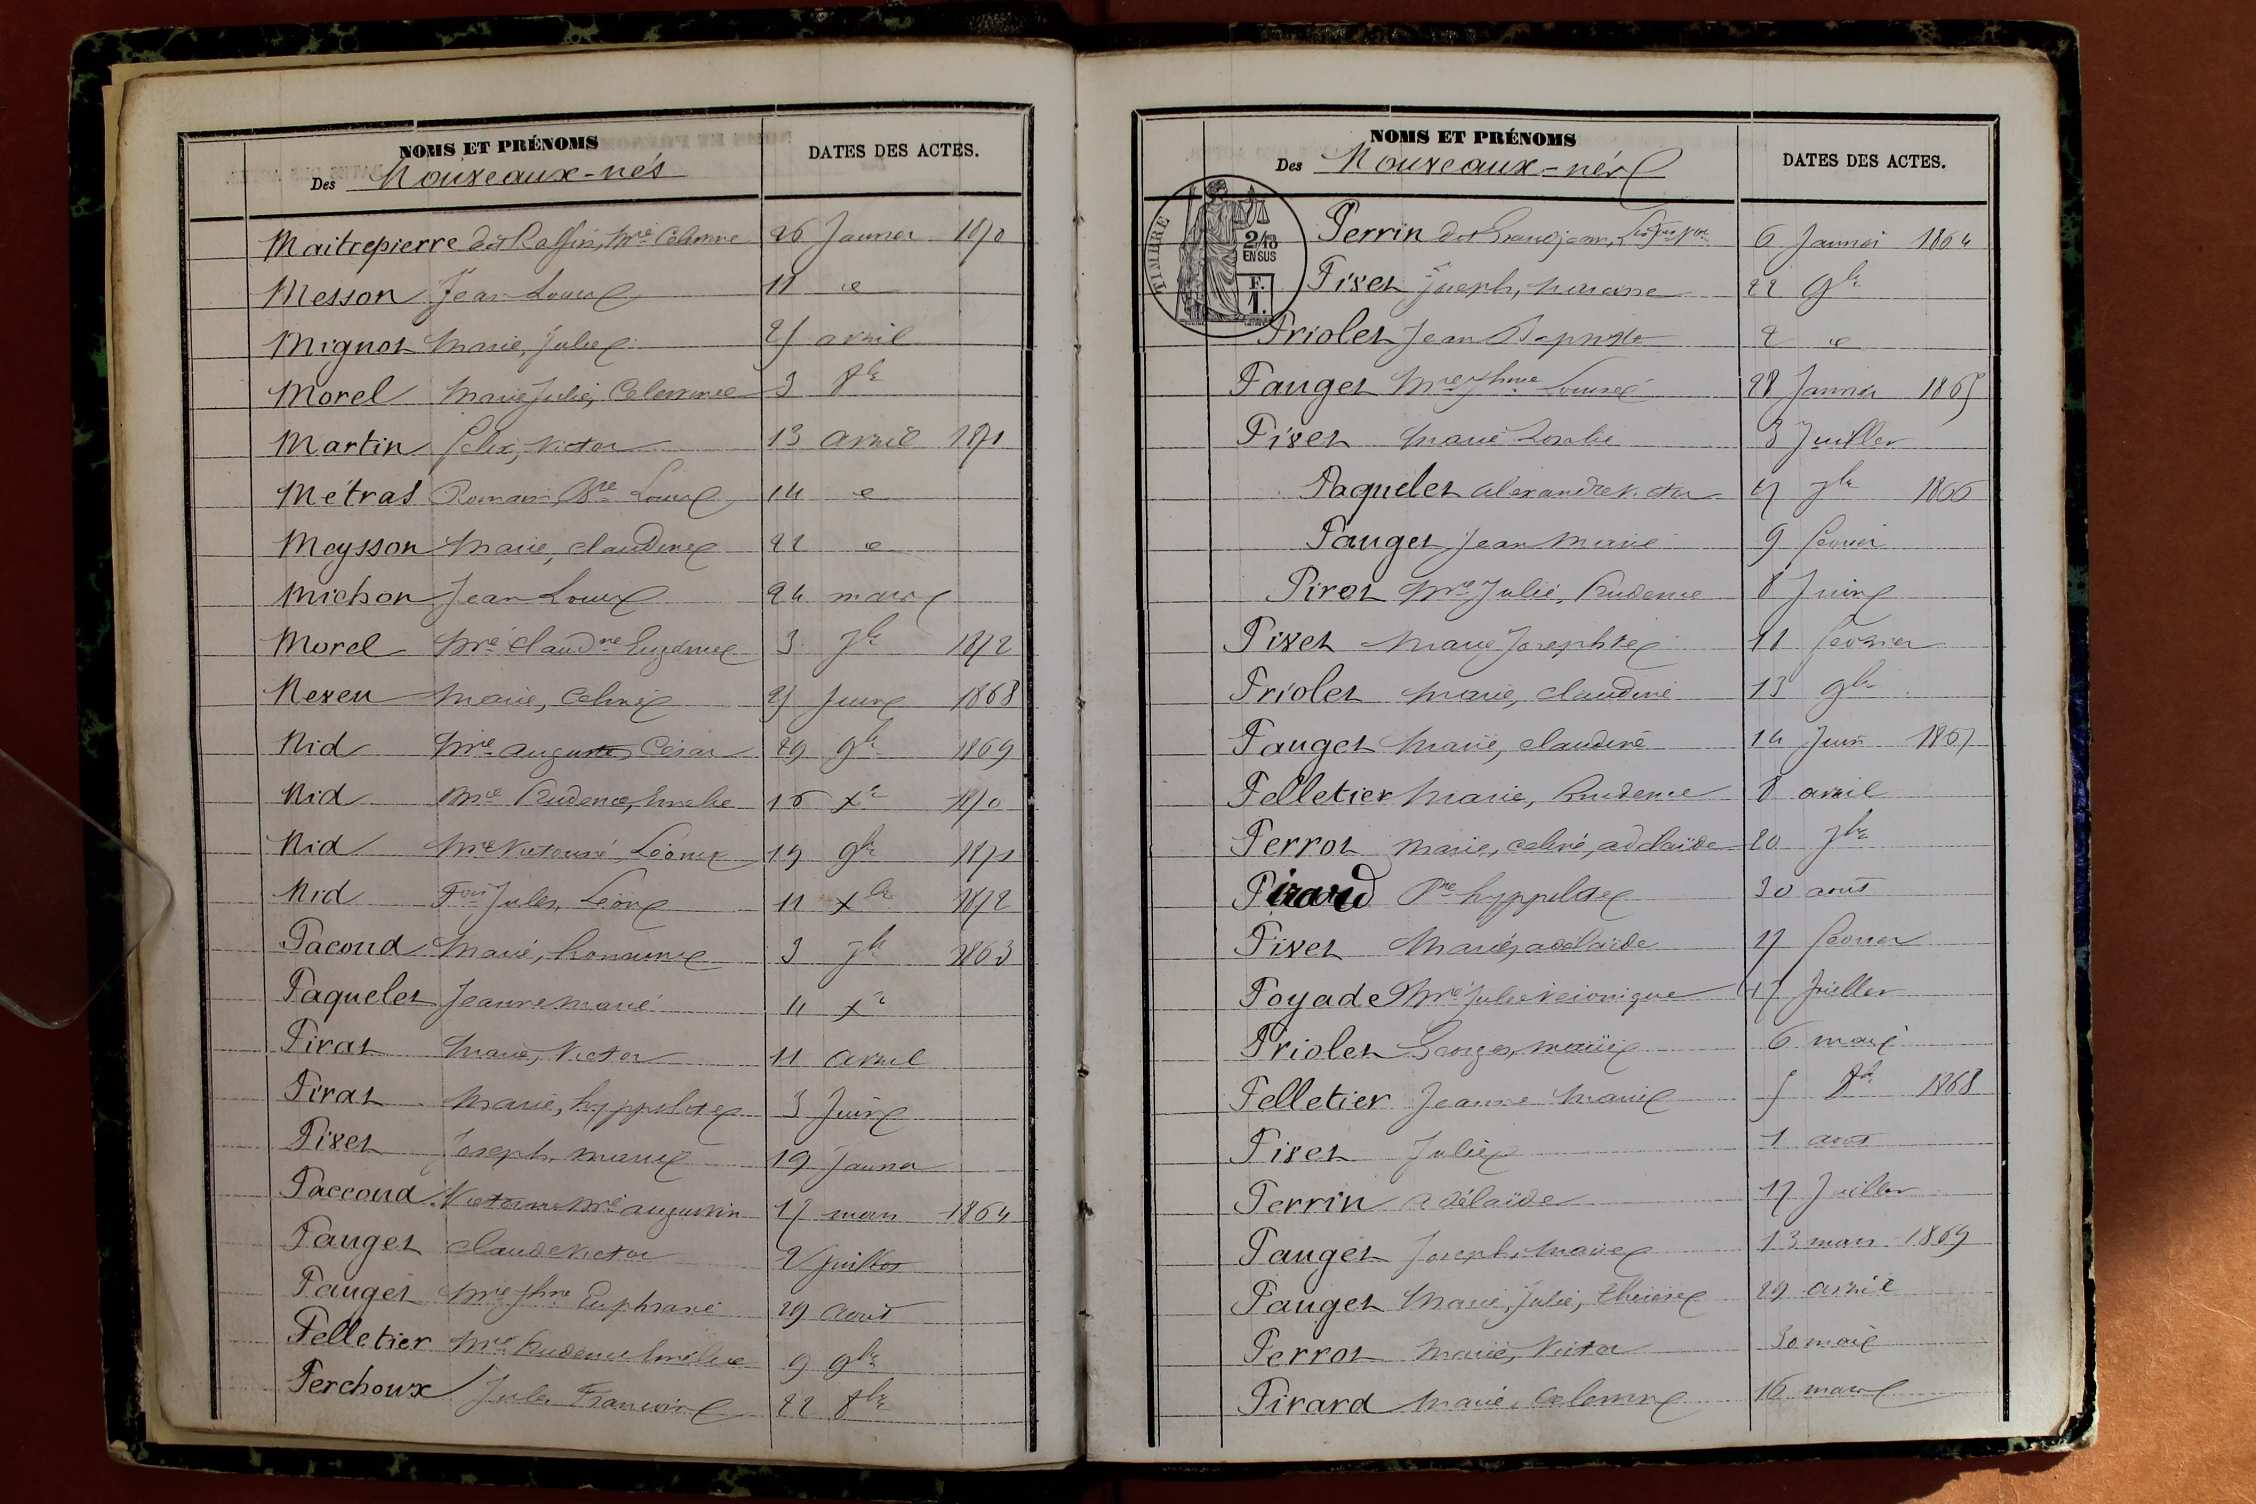 NOMS ET PRÉNOMS
Des Nouveaux-nés
DATES DES ACTES.
Maitrepierre dit Raffin, Mie 26 Janvier 1870
Messon Jean Louis 11 d
Mignot Marie, Julie avril
Morel Marie Julie, 3 8bre
Martin felix, Victor 13 avril 1871
Métras Romain 14 d
Meysson Marie, claudine 22 d
Michon Jean Louis 24 mars
Morel Mie Claudne Eugénie 3 7bre 1872
Neveu Marie, Celinie Juin 1868
Nid Mie auguste, César 29 9bre 1869
Nid Mie Prudence, Emelie 16 xbre 1870
Nid Mie Victoire, Léonie 19 9bre 1871
Nid Fois Jules, Léon 11 xbre 1872
Pacoud Marie, 3 7bre 1863
Paquelet Jeanne marie xbre
Pirat Marie, Victor 11 avril
Pirat Marie, hyppolite 3 Juin
Pivet Joseph, marie 19 Janvier
Paccoud Mie augustin 17 mars 1864
Pauget Claude Victor 2 Juillet
Pauget Mie Jhne Euphrasie 29 aout
Pelletier Mie Prudence Emélie 9 9bre
Perchoux Jules François 22 8bre
NOMS ET PRÉNOMS
Des Nouveaux-nés
DATES DES ACTES.
TIMBRE
2/10
EN SUS
F.
1.
Perrin dit Grandjean, 6 Janvier 1864
Pivet Joseph, 22 9bre
Priolet Jean Baptiste 2 d
Pauget Mie Jhne Louise 28 Janvier 1865
Pivet Marie Rosalie 3 Juillet
Paquelet alexandre Victor 7bre 1866
Pauget Jean Marie 9 fevrier
Pirot Mie Julie, Prudence 8 Juin
Pivet Marie Josephte 11 fevrier
Priolet Marie, claudine 13 9bre
Pauget Marie, claudine 14 Juin 1867
Pelletier Marie, Prudence 8 avril
Perrot Marie, celine, adelaïde 20 7bre
Pirard Pre hyppolite 30 aout
Pivet Marie, adelaïde 17 fevrier
Poyade Mie Julie Veronique 17 Juillet
Priolet Georges, marie 6 mai
Pelletier Jeanne Marie 5 8bre 1868
Pivet Julie 1 aout
Perrin adélaïde 17 Juillet
Pauget Joseph, Marie 13 mars 1869
Pauget Marie, Julie, Thérèse 29 avril
Perrot Marie, Victor 30 mai
Pirard Marie, 16 mars